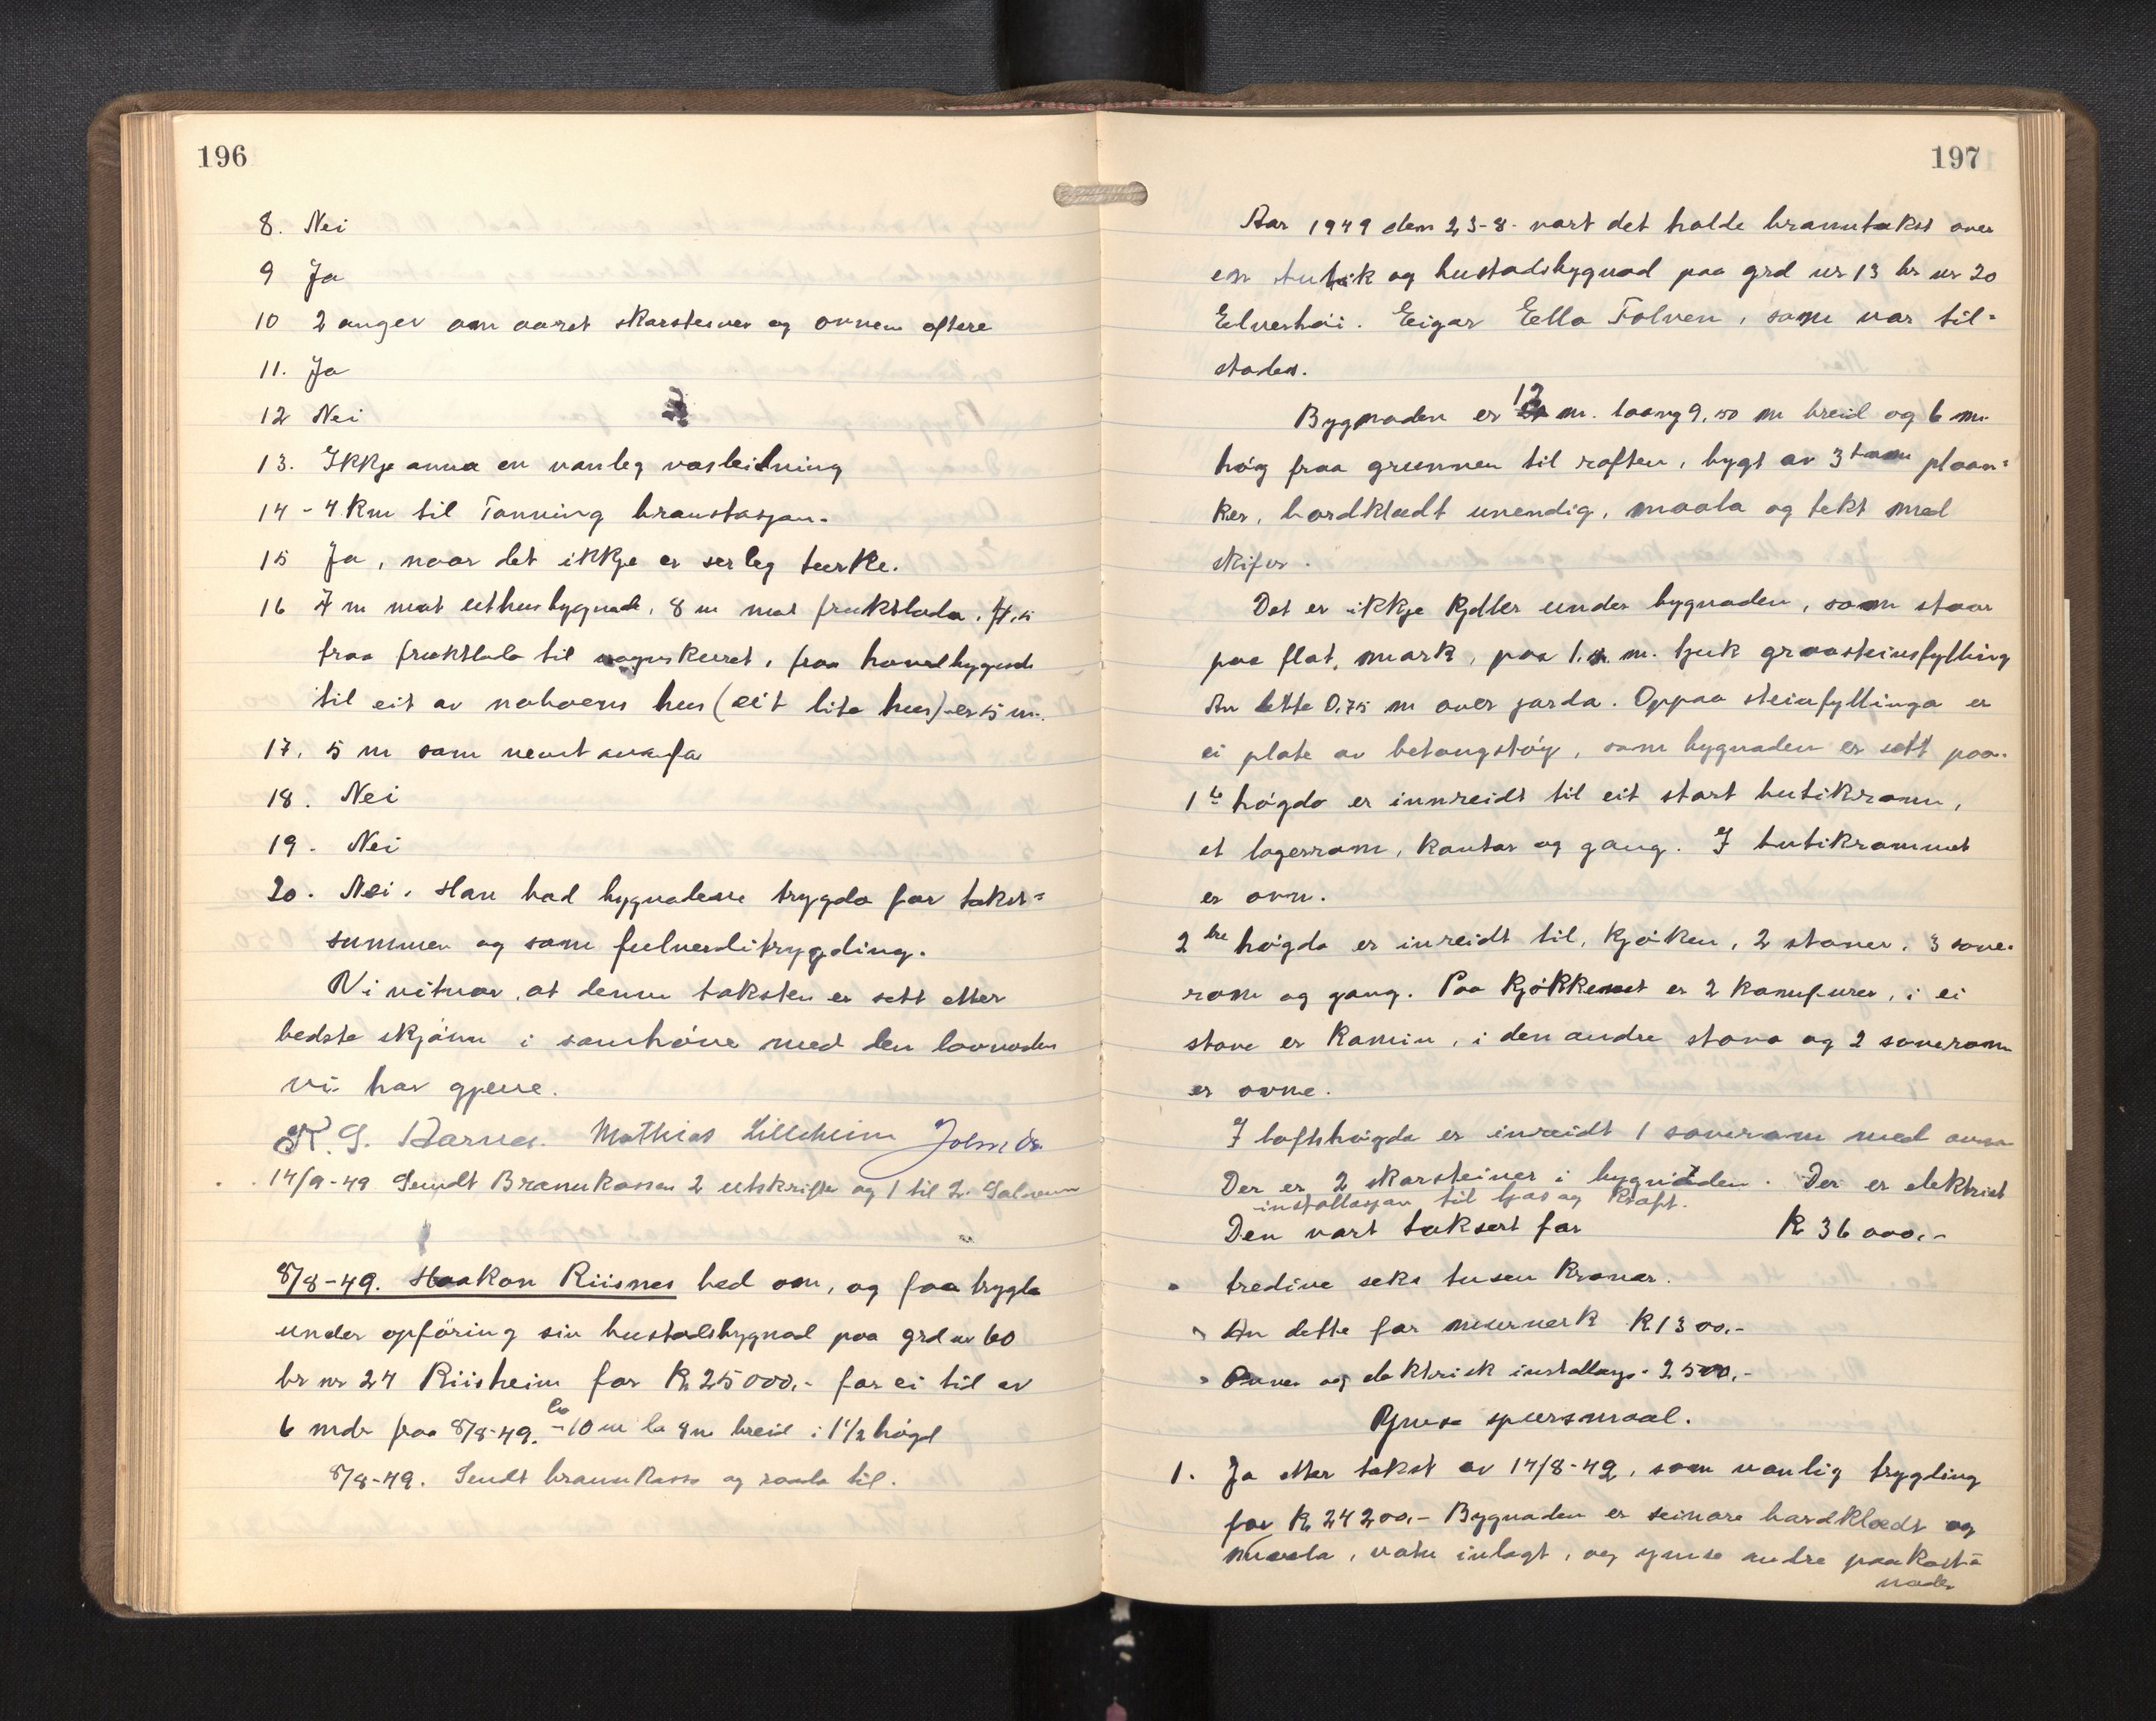 196
8. Nei
9 Ja
10 2 anger om aaret skarsteiner og ovnen oftere
11. Ja
12 Nei
13. Ikkje anna en vanleg vasleidning
14 - 4 km til Tonning branstasjon.
15 Ja, naar det ikkje er serleg turke.
16 7 m mot uthusbygnad, 8 m mot fruktlada,
fraa fruktlada til vognskuret, fraa hovedbygnad
til eit av naboens hus (eit lite hus) er 5 m.
17. 5 m som nemt
18. Nei
19. Nei
20. Nei. Han bad bygnadene trygda for takst=
summen og som fulverditrygding.
Vi vitnar, at denne taksten er sett etter
bedste skjønn i samhøve med den lovnaden
vi har gjeve.
Mathias Lilleheim
14/9-49 Sendt Brannkassen 2 utskrifter og 1 til
8/8-49. Haakon Riisnes bed om, og faa trygda
under opföring sin bustadsbygnad paa grd nr 60
br nr 24 Riisheim for Kr 25000.- for ei tid av
6 mdr fraa 8/8-49. ca 10 m la 8 m breid i 1 1/2 høgd
8/8-49. Sendt brannkassa og raada til.
197
Aar 1949 den 23-8- vart det halde branntakst over
en butik og bustadsbygnad paa grd nr 13 br nr 20
Elverhöi. Eigar Ella Folven, som var til=
stades.
Bygnaden er 12 m. laang 9,50 m breid og 6 m.
høg fraa grunnen til raften, bygt av 3 tom plaan=
ker, bordklædt unendig, maala og tekt med
skifer.
Det er ikkje kjeller under bygnaden, som staar
paa flat, mark, paa 1. m. tjuk graasteinsfylling
Av dette 0,75 m over jorda. Oppaa steinfyllinga er
ei plate av betongstöyp, som bygnaden er sett paa.
1te høgda er innreidt til eit stort butikrom,
et lagerrom, kontor og gang. I butikrommet
er ovn.
2dre høgda er inreidt til, kjøken, 2 stover, 3 sove=
rom og gang. Paa kjøkkenet er 2 komfurer, i ei
stove er kamin, i den andre stova og 2 soverom
er ovne.
I loftshøgda er inreidt 1 soverom med ovn
Der er 2 skorsteiner i bygnaden. Der er elektrisk
installasjon til ljos og kraft.
Den vart taksert for Kr 36 000.-
tredive seks tusen kronar.
Av dette for murverk Kr 1300.-
Ovner og elektrisk installasjo- 2500.-
Ymse spursmaal.
1. Ja etter takst av 14/8-42, som vanlig trygding
for Kr 24200.- Bygnaden er seinare bordklædt og
maala, vatn inlagt, og ymse andre paakost=
nader